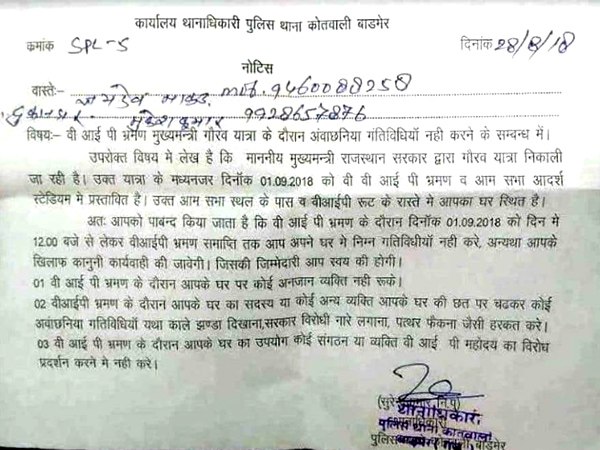 कार्यालय थानाधिकारी पुलिस थाना कोतवाली बाडमेर
कमांक SPL-5 दिनांक 28/8/18
नोटिस
वास्तेः- मो. 9460088258
दुकानदार - मुकेश कुमार 9928657876
विषयः- वी आई पी भ्रमण मुख्यमन्त्री गौरव यात्रा के दौरान अंवाछनिया गतिविधियों नही करने के सम्बन्ध में।
उपरोक्त विषय मे लेख है कि माननीय मुख्यमन्त्री राजस्थान सरकार द्वारा गौरव यात्रा निकाली
जा रही है। उक्त यात्रा के मध्यनजर दिनॉक 01.09.2018 को वी वी आई पी भ्रमण व आम सभा आदर्श
स्टेडियम मे प्रस्तावित है। उक्त आम सभा स्थल के पास व वीआईपी रूट के रास्ते मे आपका घर स्थित है।
अतः आपको पाबन्द किया जाता है कि वी आई पी भ्रमण के दौरान दिनॉक 01.09.2018 को दिन मे
12.00 बजे से लेकर वीआईपी भ्रमण समाप्ति तक आप अपने घर मे निम्न गतिविधीयों नही करे, अन्यथा आपके
खिलाफ कानुनी कार्यवाही की जावेगी। जिसकी जिम्मेदारी आप स्वय की होगी।
01 वी आई पी भ्रमण के दौरान आपके घर पर कोई अनजान व्यक्ति नही रूके।
02 वीआईपी भ्रमण के दौरान आपके घर का सदस्य या कोई अन्य व्यक्ति आपके घर की छत पर चढकर कोई
अंवाछनिया गतिविधियों यथा काले झण्डा दिखाना,सरकार विरोधी नारे लगाना, पत्थर फैकना जैसी हरकत करे।
03 वी आई पी भ्रमण के दौरान आपके घर का उपयोग कोई संगठन या व्यक्ति वी आई पी महोदय का विरोध
प्रदर्शन करने मे नही करे।
थानाधिकारी
पुलिस थाना कोतवाली
पुलिस कोतवाली बाडमेर